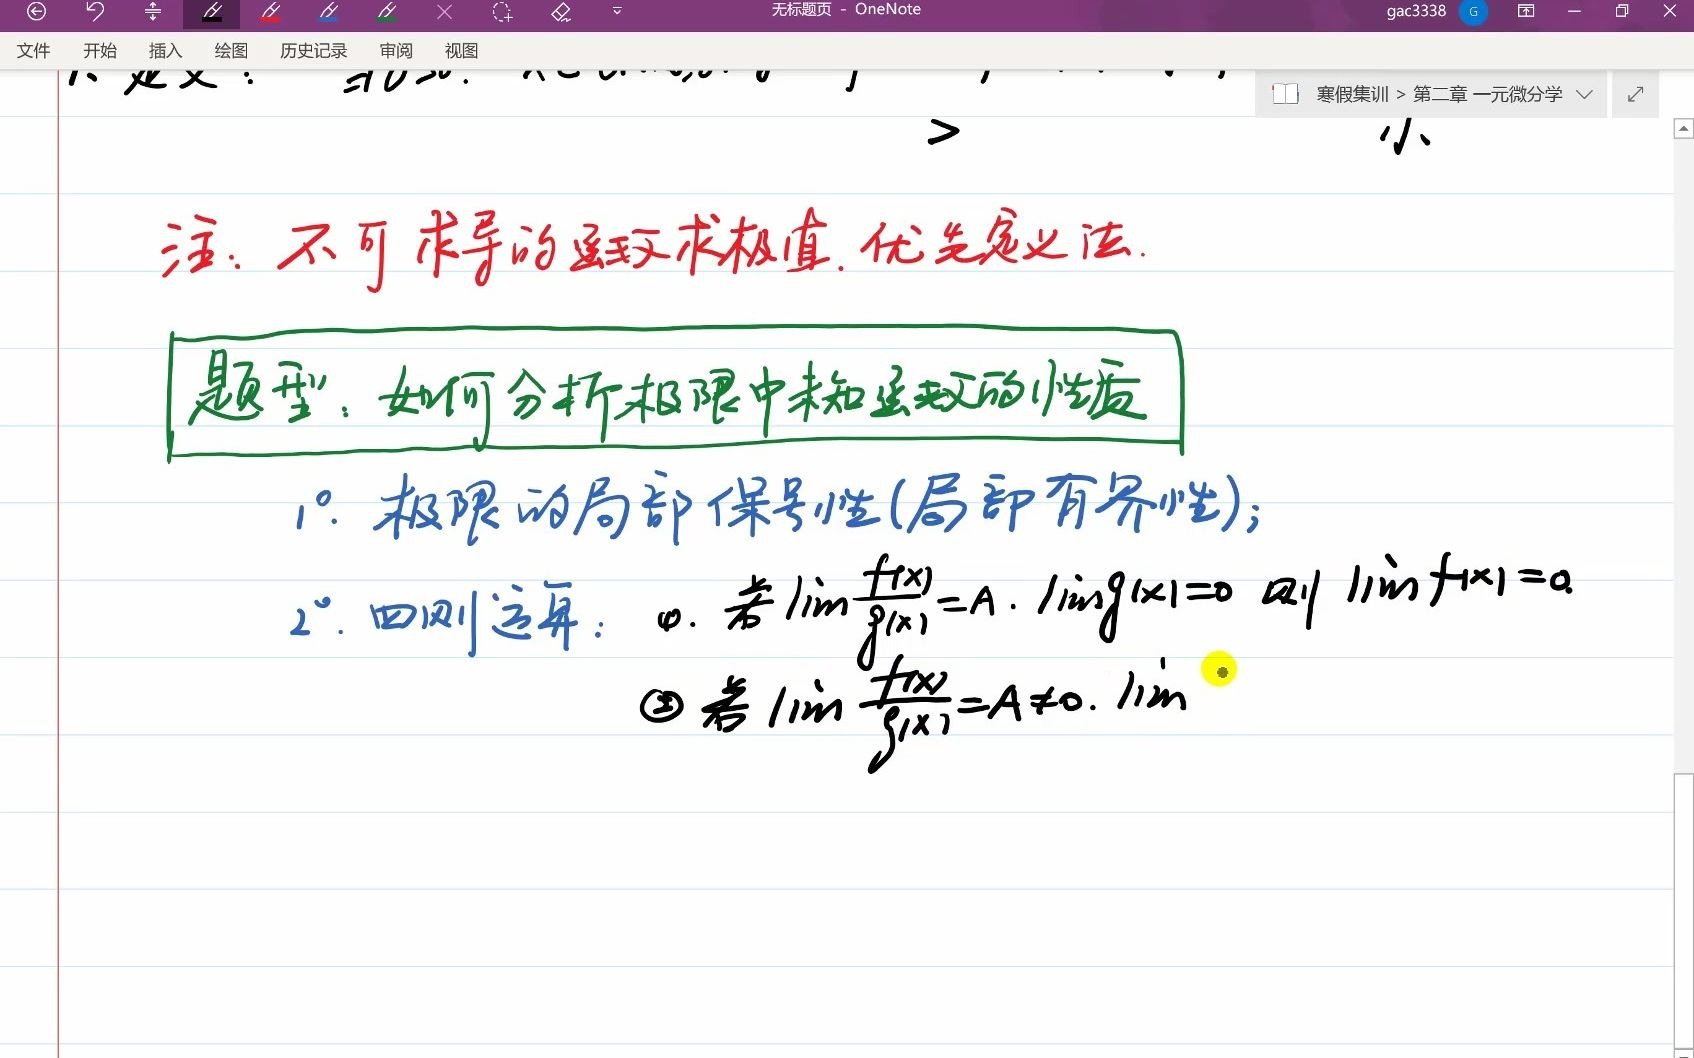 无标题页 - OneNote
gac3338
G
文件 开始 插入 绘图 历史记录 审阅 视图
寒假集训 > 第二章 一元微分学
1. 定义:
> 小
注: 不可求导的函数求极值. 优先定义法.
题型: 如何分析极限中未知函数的性质
1°. 极限的局部保号性(局部有界性);
2°. 四则运算: ①. 若 lim f(x)/g(x) = A. lim g(x) = 0 则 lim f(x) = 0.
② 若 lim f(x)/g(x) = A ≠ 0. lim